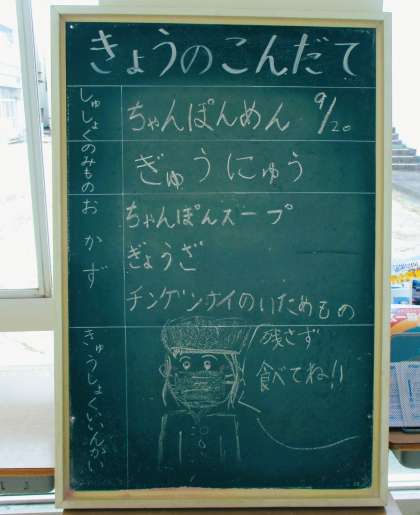 きょうのこんだて
しゅしょく
ちゃんぽんめん 9/20
のみもの
ぎゅうにゅう
おかず
ちゃんぽんスープ
ぎょうざ
チンゲンサイのいためもの
きゅうしょくいいんかい
残さず
食べてね!!